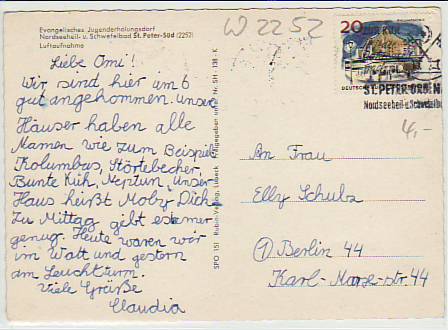 Evangelisches Jugenderholungsdorf
Nordseeheil- u. Schwefelbad St. Peter-Süd (2252)
Luftaufnahme
W 2252
Liebe Omi!
Wir sind hier im 6
gut angekommen. Unser
Häuser haben alle
Namen wie zum Beispiel
Kolumbus, Störtebecher,
Bunte Kuh, Neptun, Unser
Haus heißt Moby Dick
Zu Mittag gibt es immer
genug. Heute waren wir
im Watt und gestern
am Leuchturm.
Viele Grüße
Claudia
SPO 151 Rubin-Verlag, Lübeck Freigegeben unter Nr. SH - 138 - K
20
DEUTSCHE
ST. PETER-ORDIN
Nordseeheil- u. Schwefelba
4,-
An Frau
Elly Schulz
1 Berlin 44
Karl-Marx-str. 44